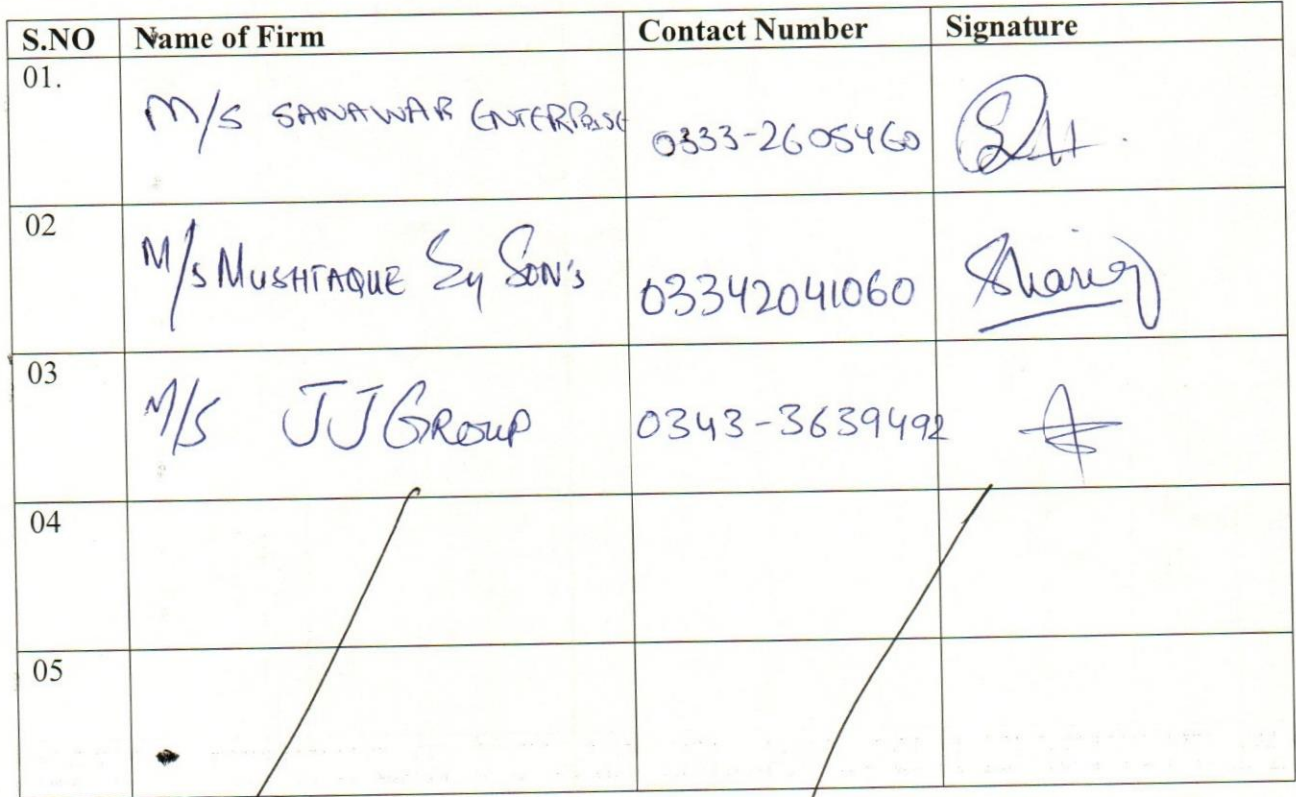 S.NO Name of Firm Contact Number Signature
01. M/S SANAWAR ENTERPRISE 0333-2605460
02 M/S MUSHTAQUE Sons 03342041060
03 M/S JJ GROUP 0343-3639492
04
05